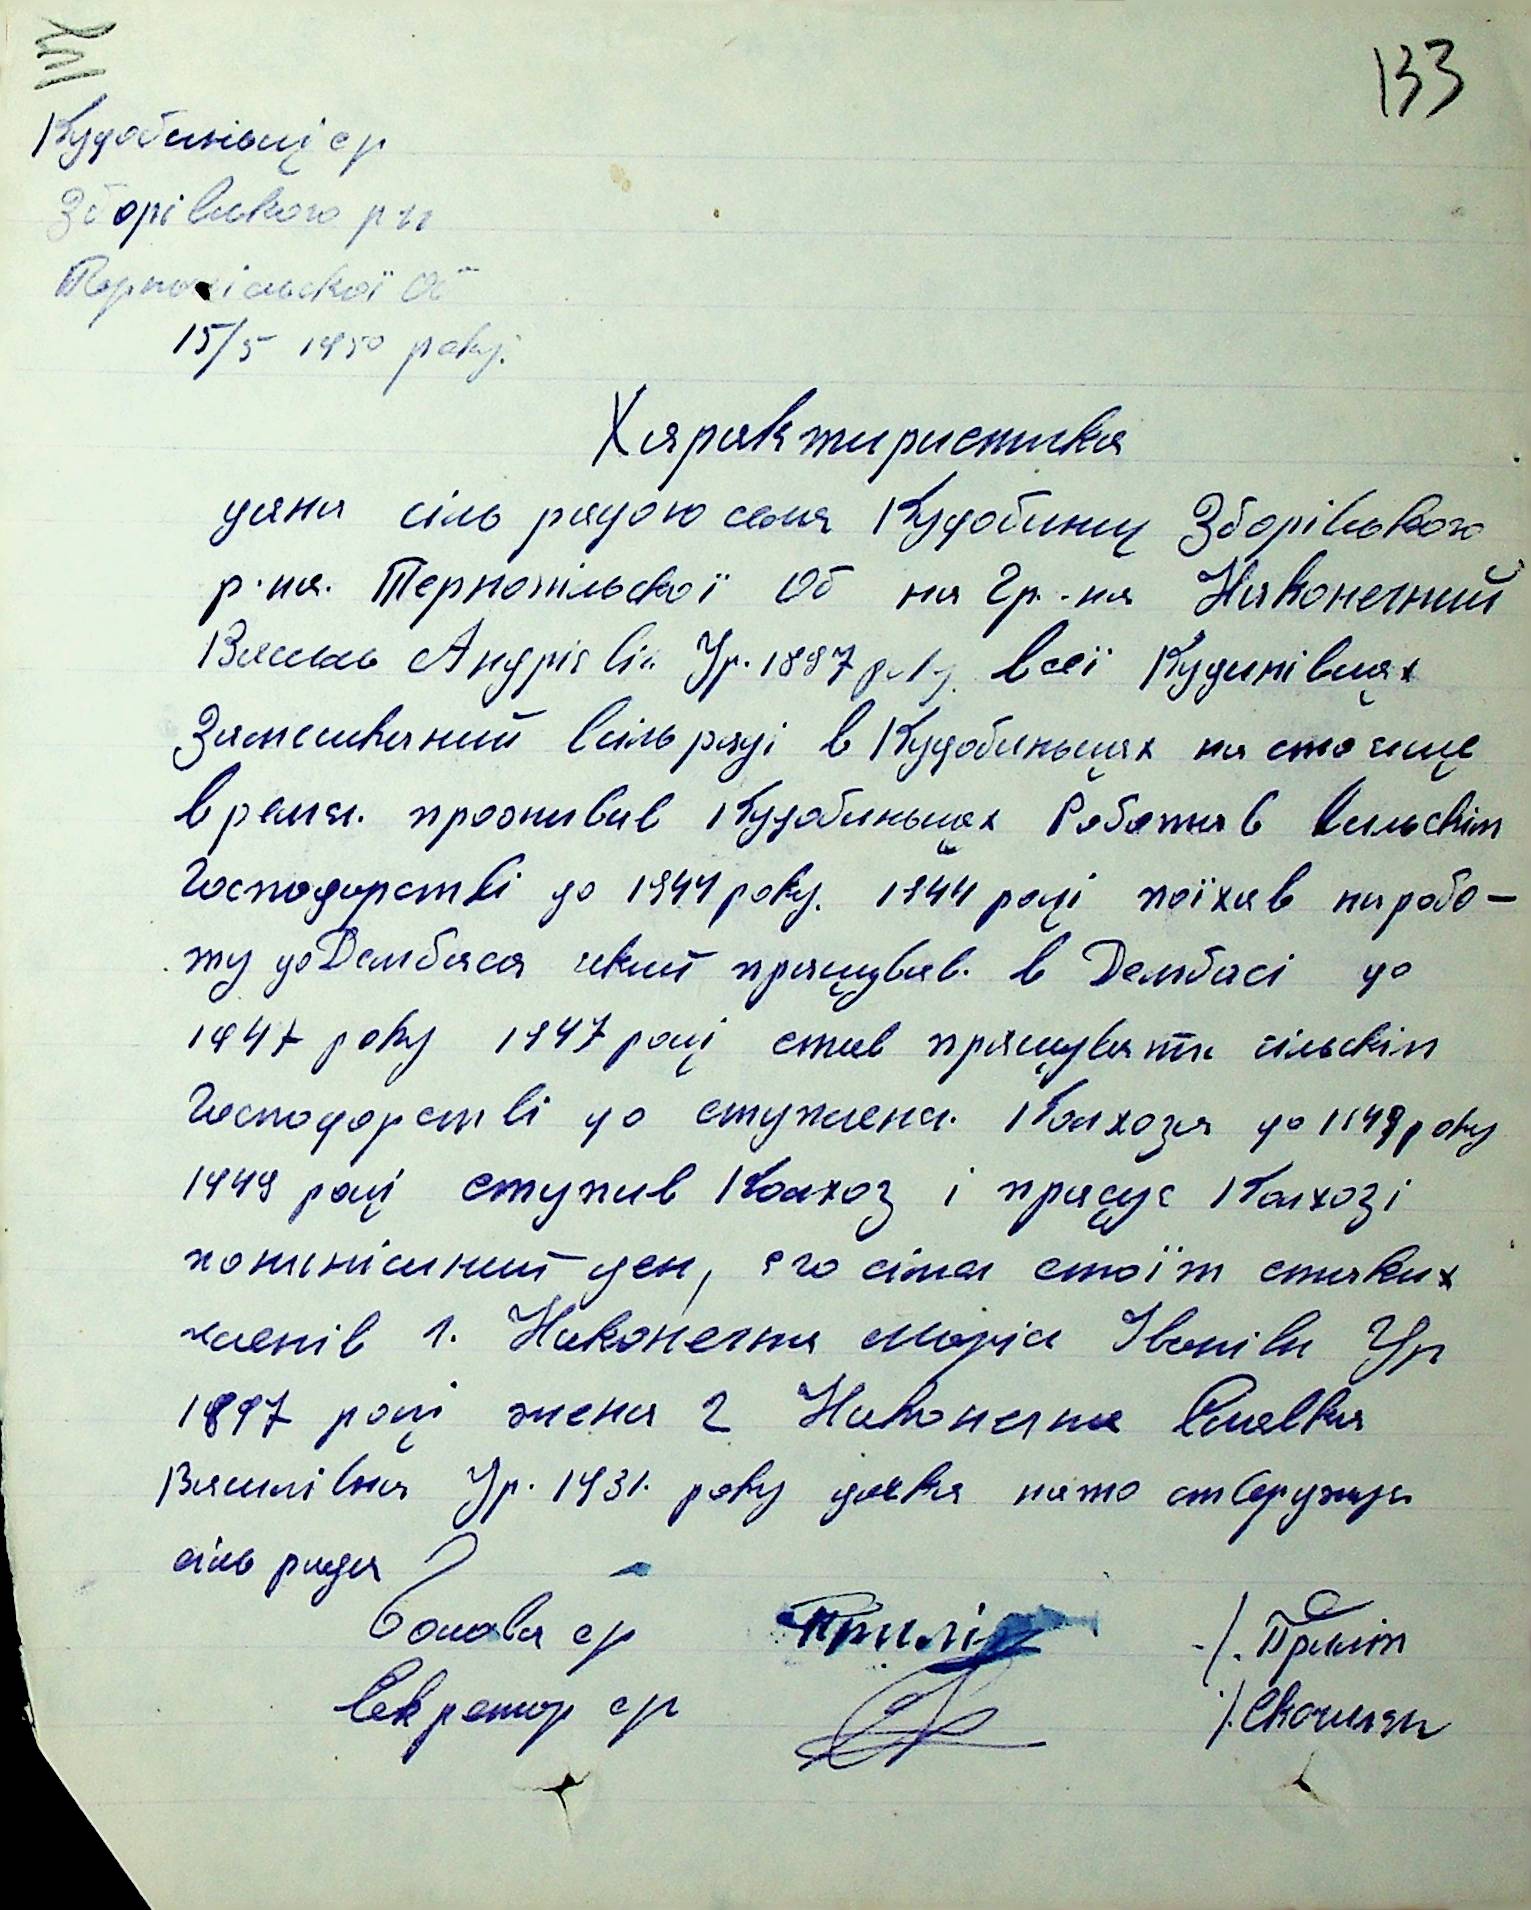 133
Кудобинці ср
Зборівського рн
Тернопільскої Об
15/5 1950 року.
Харяктиристика
дана сіль радою села Кудобинц Зборівького
р-на. Тернопільскої Об на Гр-на Наконечний
Василь Андрієвіч Ур. 1897 року. в селі Кудинівцях
Замешканий в сільраді в Кудобиньцях на сточище
время. проживав Кудобиньцях Работав в сильскім
Господарстві до 1944 року. 1944 році поїхав на робо-
ту до Дембаса який працував. в Дембасі до
1947 року 1947 році став працувати сільскім
Господарстві до ступлена. Колхоза до 1949 року
1949 році ступив Колхоз і працує Колхозі
понинісшний ден, его сімя стоїт стяких
членів 1. Наконечна Марія Іванівн Ур
1897 році жена 2 Наконечна Славка
Василівна Ур. 1931. року дочка нато стверужує
сіль рада
Голова ср Приліп /. Приліп
Секретар ср /.